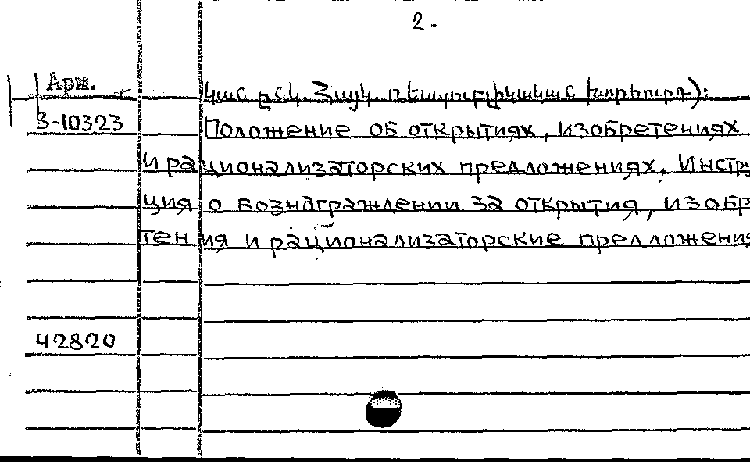 2.
Арм.
կաս ըտկ. Հայկ.
3-10323
Положение об открытиях, изобретениях
и рационализаторских предложениях. Инстр
ция о вознаграждении за открытия, изобр
тения и рационализаторские предложения
42820